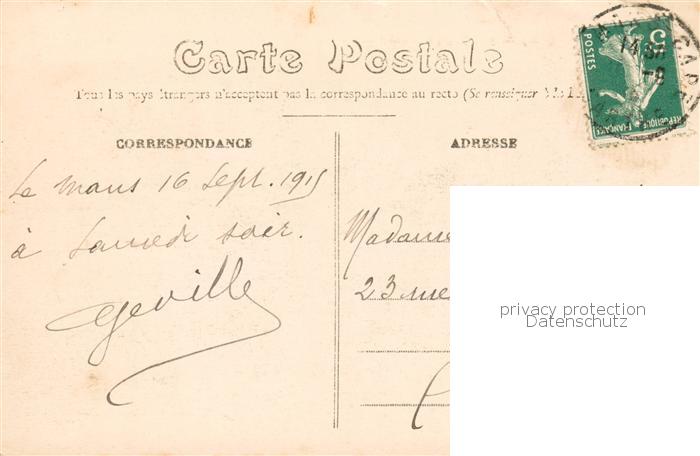 Carte Postale
Tous les pays étrangers n'acceptent pas la correspondance au recto (Se renseigner à la
CORRESPONDANCE
ADRESSE
Le Mans 16 Sept. 1915
à Samedi soir.
Madame
23 rue
5
POSTES
REPUBLIQUE FRANÇAISE
privacy protection
Datenschutz